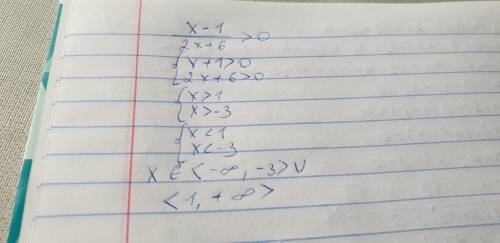 x-1
2x+6 >0
{x+1>0
2x+6>0
{x>1
x>-3
{x<1
x<-3
x ∈ <-∞, -3> ∪
<1, +∞>